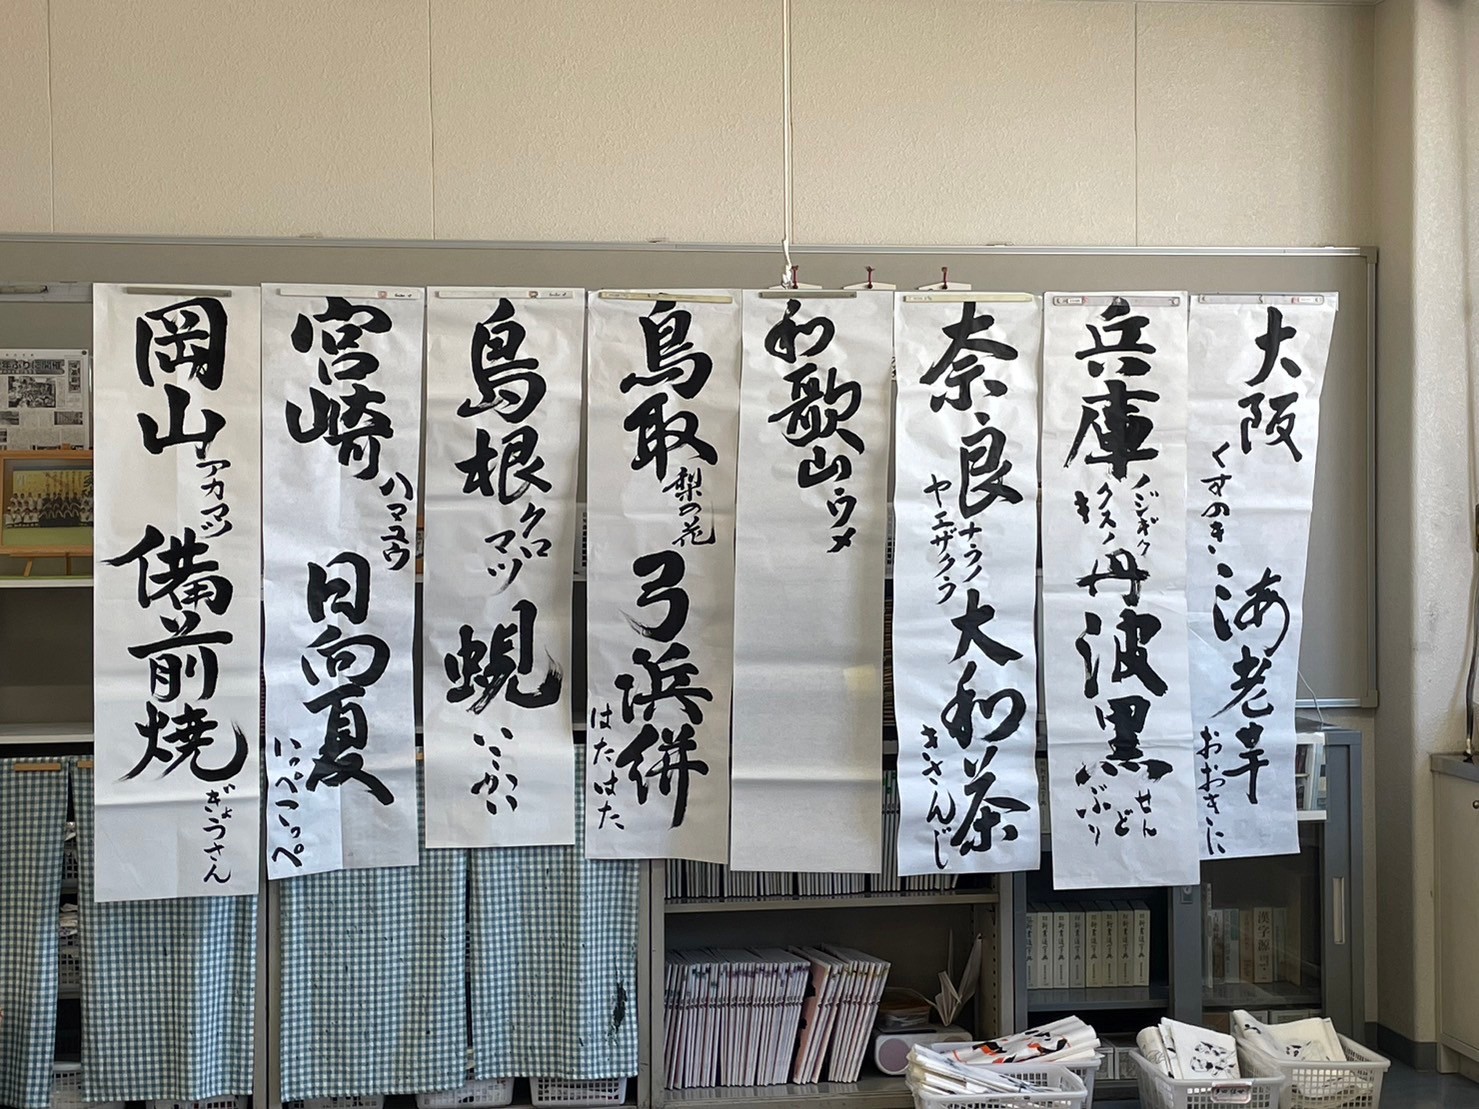 大阪
くすのき
海老芋
おおきに
兵庫
ノジギク
クスノキ
丹波黒
せんど
奈良
ナラノ
ヤエザクラ
大和茶
きさんじ
和歌山
ウメ
鳥取
梨の花
弓浜絣
はたはた
島根
クロマツ
蜆
宮崎
ハマユウ
日向夏
いっぺこっぺ
岡山
アカマツ
備前焼
ぎょうさん